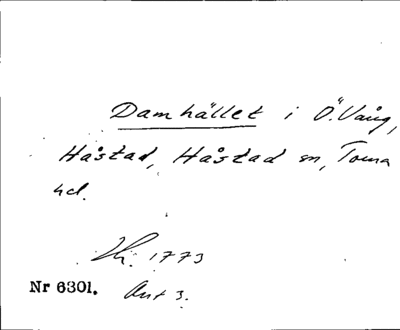 Damhället i Ö. Vång,
Håstad, Håstad sn, Torna
hd.
1773
Nr 6301. Akt 3.